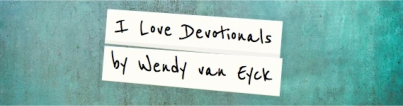 I Love Devotionals
by Wendy van Eyck